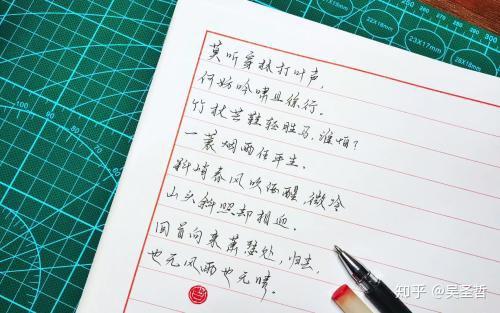 莫听穿林打叶声，
何妨吟啸且徐行。
竹杖芒鞋轻胜马，谁怕？
一蓑烟雨任平生。
料峭春风吹酒醒，微冷
山头斜照却相迎。
回首向来萧瑟处，归去，
也无风雨也无晴。
22×18MM
23×17MM
28×18MM
知乎 @吴圣哲